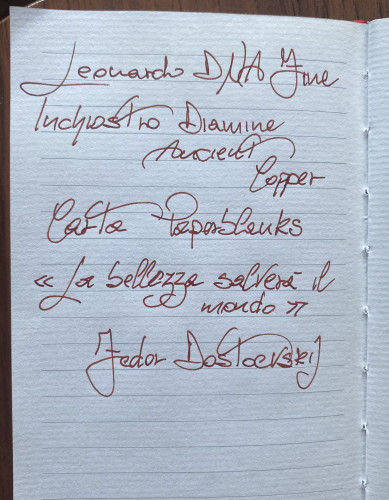 Leonardo DNA Fine
Inchiostro Diamine
Ancient
Copper
Carta Paperblanks
« La bellezza salverà il
mondo »
Fedor Dostoevskij